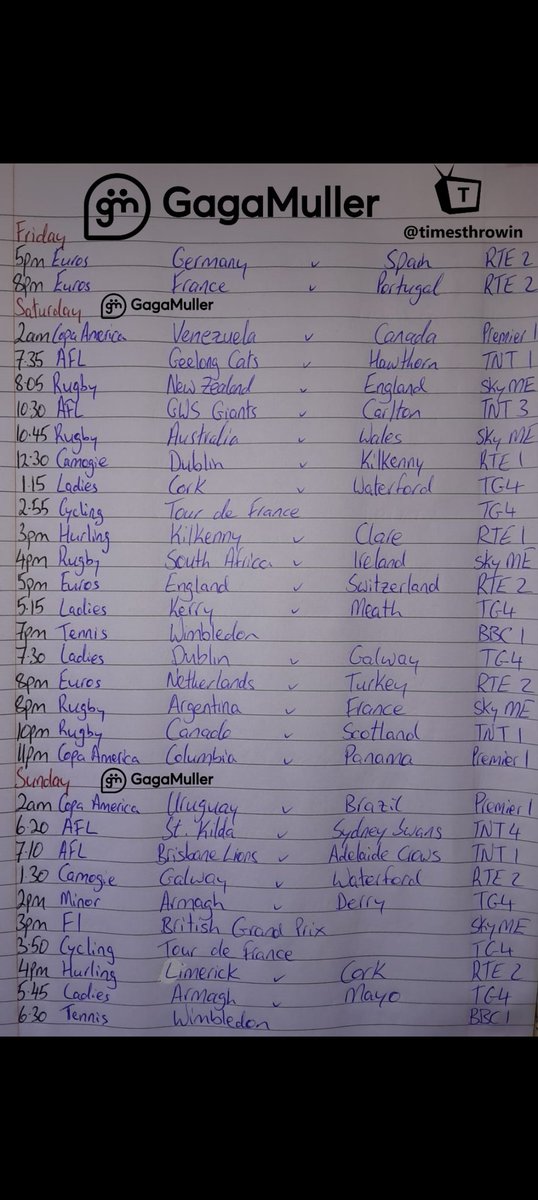 GagaMuller
T
@timesthrowin
Friday
5pm Euros Germany v Spain RTE 2
8pm Euros France v Portugal RTE 2
Saturday gm GagaMuller
2am Copa America Venezuela v Canada Premier 1
7:35 AFL Geelong Cats v Hawthorn TNT 1
8:05 Rugby New Zealand v England Sky ME
10:30 AFL GWS Giants v Carlton TNT 3
10:45 Rugby Australia v Wales Sky ME
12:30 Camogie Dublin v Kilkenny RTE 1
1:15 Ladies Cork v Waterford TG4
2:55 Cycling Tour de France TG4
3pm Hurling Kilkenny v Clare RTE 1
4pm Rugby South Africa v Ireland Sky ME
5pm Euros England v Switzerland RTE 2
5:15 Ladies Kerry v Meath TG4
7pm Tennis Wimbledon BBC 1
7:30 Ladies Dublin v Galway TG4
8pm Euros Netherlands v Turkey RTE 2
8pm Rugby Argentina v France Sky ME
10pm Rugby Canada v Scotland TNT 1
11pm Copa America Columbia v Panama Premier 1
Sunday gm GagaMuller
2am Copa America Uruguay v Brazil Premier 1
6:20 AFL St. Kilda v Sydney Swans TNT 4
7:10 AFL Brisbane Lions v Adelaide Crows TNT 1
1:30 Camogie Galway v Waterford RTE 2
2pm Minor Armagh v Derry TG4
3pm F1 British Grand Prix Sky ME
3:50 Cycling Tour de France TG4
4pm Hurling Limerick v Cork RTE 2
5:45 Ladies Armagh v Mayo TG4
6:30 Tennis Wimbledon BBC 1